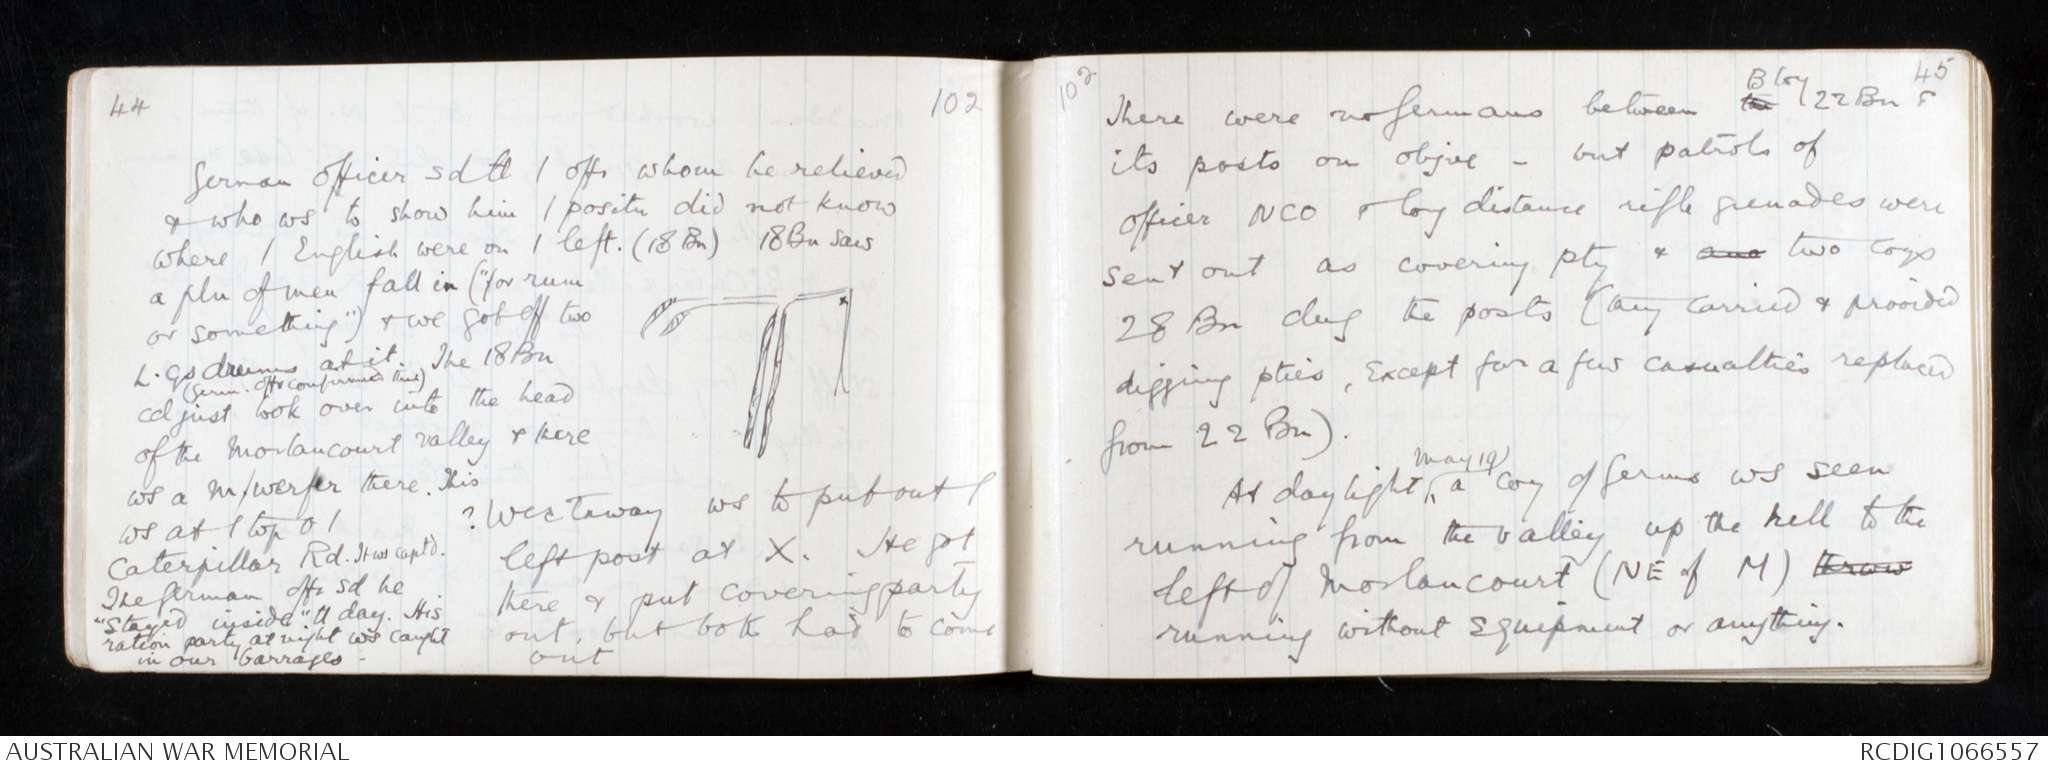 44
102
German officer sd tt / offr whom he relieved
& who ws to show him / positn did not know
where / English were on / left. (18 Bn) 18 Bn saw
a pln of men fall in ("for rum
or something") & we got off two
L. Gs drums at it. The 18 Bn
(Germ. offr confirmed this)
cd just look over into the head
of the Morlancourt valley & there
ws a M/werfer there. This
ws at / top o /
Caterpillar Rd. It ws captd.
The German offr sd he
"stayed inside" tt day. His
ration party at night ws caught
in our barrages -
? Westaway ws to put out /
left post at X. He got
there & put covering party
out, but both had to come
out
102
45
B Coy
There were no Germans between the 22 Bn &
its posts on objve - but patrols of
officer NCO & long distance rifle grenades were
sent out as covering pty & and two coys
28 Bn dug the posts (they carried & provided
digging pties, except for a few casualties replaced
from 22 Bn).
May 19
At daylight, a coy of Germs ws seen
running from the valley up the hill to the
left of Morlancourt (NE of M) throw
running without equipment or anything.
AUSTRALIAN WAR MEMORIAL
RCDIG1066557